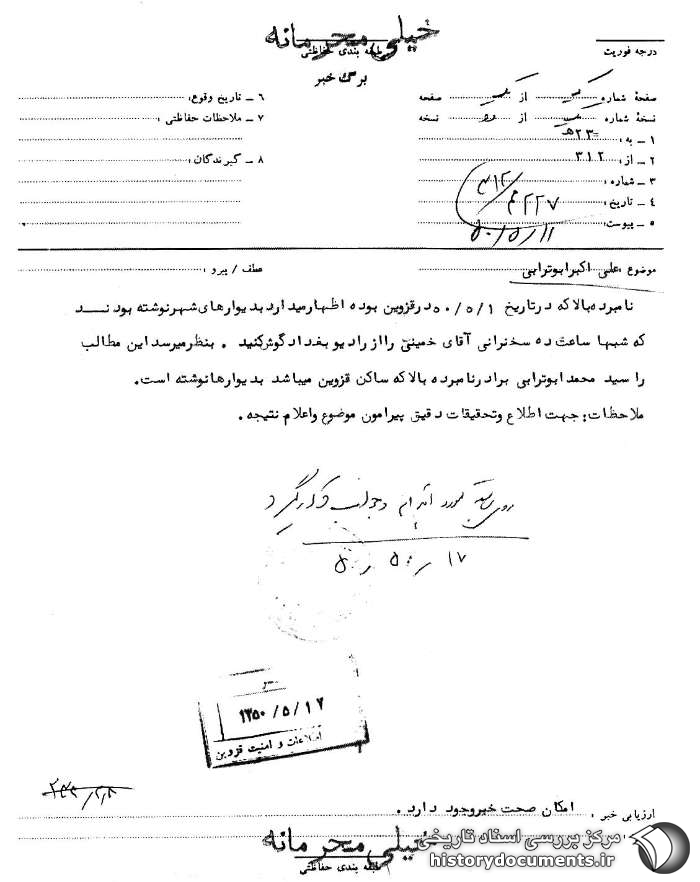 خیلی محرمانه
طبقه بندی حفاظتی
درجه فوریت
برگ خبر
صفحهٔ شماره یک از یک صفحه
نسخهٔ شماره از نسخه
۱ ـ به : ۲۳ هـ
۲ ـ از : ۳۱۲
۳ ـ شماره :
۴ ـ تاریخ : ۵۰/۵/۱۱
۵ ـ پیوست :
۶ ـ تاریخ وقوع :
۷ ـ ملاحظات حفاظتی :
۸ ـ گیرندگان :
موضوع : علی اکبر ابوترابی
عطف / پیرو :
نامبرده بالا که در تاریخ ۵۰/۵/۱ در قزوین بوده اظهار میدارد بدیوارهای شهر نوشته بودند
که شبها ساعت ده سخنرانی آقای خمینی را از رادیو بغداد گوش کنید . بنظر میرسد این مطالب
را سید محمد ابوترابی برادر نامبرده بالا که ساکن قزوین میباشد بدیوارها نوشته است.
ملاحظات: جهت اطلاع و تحقیقات دقیق پیرامون موضوع و اعلام نتیجه .
۱۳۵۰/۵/۱۷
اطلاعات و امنیت قزوین
ارزیابی خبر : امکان صحت خبر وجود دارد .
خیلی محرمانه
طبقه بندی حفاظتی
مرکز بررسی اسناد تاریخی
historydocuments.ir